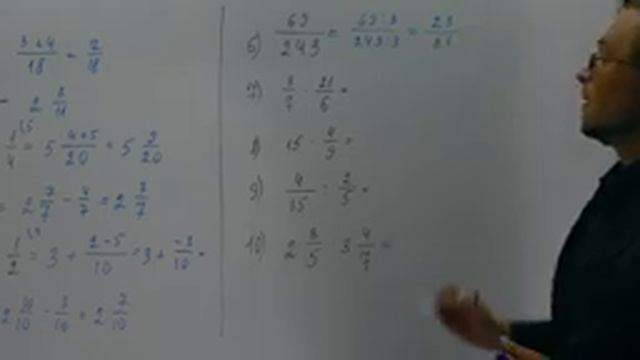 3+4/18 = 7/18
2 8/11
1/4 = 5 4+5/20 = 5 9/20
= 2 7/7 - 4/7 = 2 3/7
1/2 = 3 + 2-5/10 = 3 + -3/10 =
2 10/10 - 3/10 = 2 7/10
6) 69/243 = 69:3/243:3 = 23/81
7) 3/7 · 21/6 =
8) 15 · 4/9 =
9) 4/15 : 2/5 =
10) 2 3/5 · 3 4/7 =